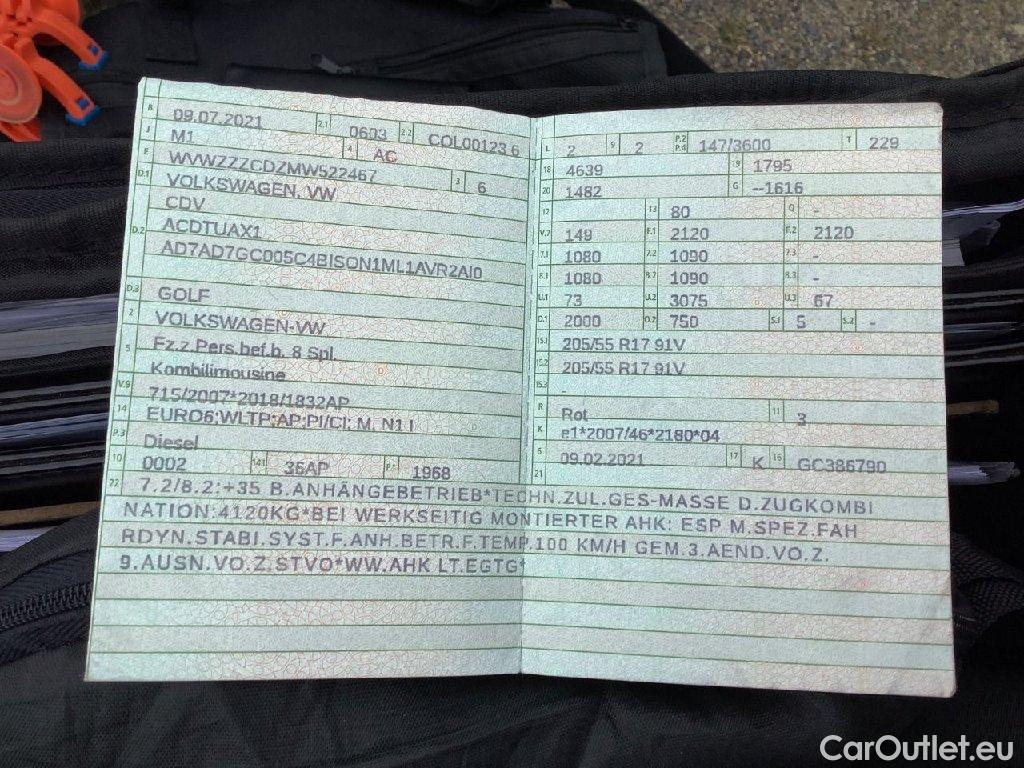 B 09.07.2021 2.1 0603 2.2 COL00123 6
J M1 4 AC
E WVWZZZCDZMW522467 3 6
D.1 VOLKSWAGEN, VW
CDV
D.2 ACDTUAX1
AD7AD7GC005C4BISON1ML1AVR2AI0
D.3 GOLF
2 VOLKSWAGEN-VW
5 Fz.z.Pers.bef.b. 8 Spl.
Kombilimousine
V.9 715/2007*2018/1832AP
14 EURO6;WLTP;AP;PI/CI; M, N1 I
P.3 Diesel
10 0002 14.1 36AP P.1 1968
L 2 9 2 P.2 P.4 147/3600 T 229
18 4639 19 1795
20 1482 G --1616
12 13 80 Q -
V.7 149 F.1 2120 F.2 2120
7.1 1080 7.2 1090 7.3 -
8.1 1080 8.2 1090 8.3 -
U.1 73 U.2 3075 U.3 67
O.1 2000 O.2 750 S.1 5 S.2 -
15.1 205/55 R17 91V
15.2 205/55 R17 91V
15.3 -
R Rot 11 3
K e1*2007/46*2180*04
6 09.02.2021 17 K 16 GC386790
21
22 7.2/8.2:+35 B.ANHÄNGEBETRIEB*TECHN.ZUL.GES-MASSE D.ZUGKOMBI
NATION:4120KG*BEI WERKSEITIG MONTIERTER AHK: ESP M.SPEZ.FAH
RDYN.STABI.SYST.F.ANH.BETR.F.TEMP.100 KM/H GEM.3.AEND.VO.Z.
9.AUSN.VO.Z.STVO*WW.AHK LT.EGTG*
CarOutlet.eu